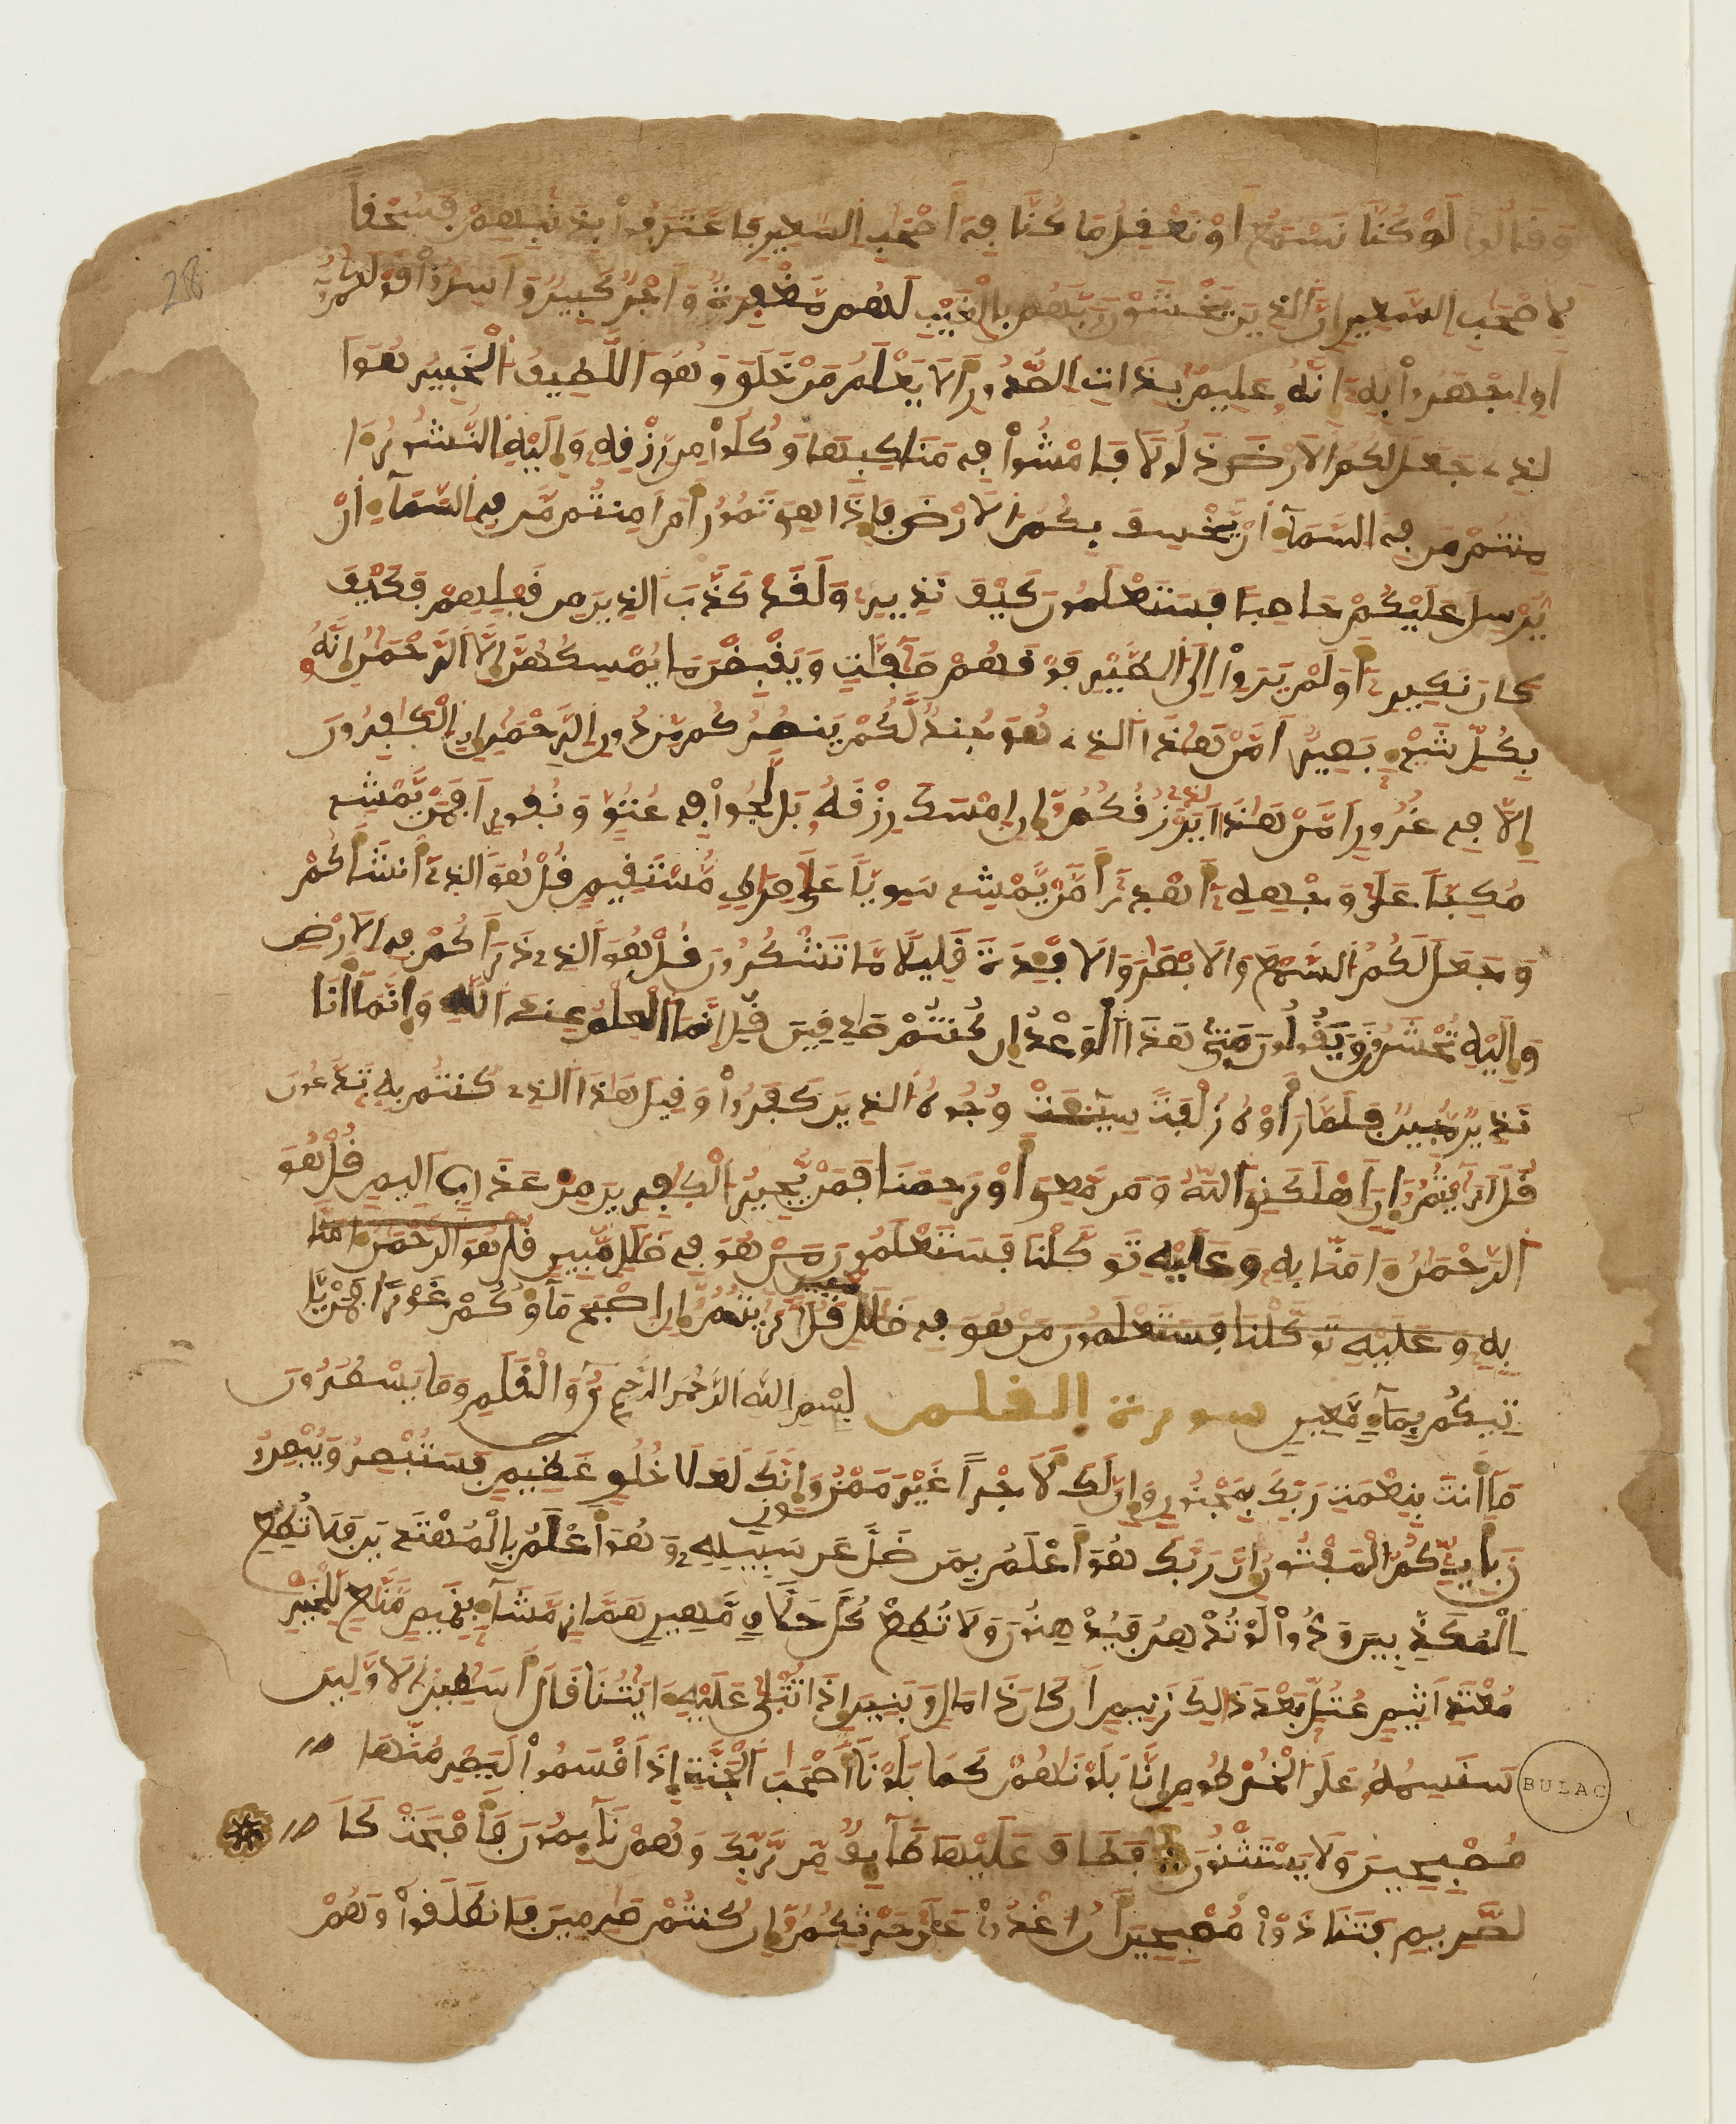 وَقَالُواْ لَوْ كُنَّا نَسْمَعُ أَوْ نَعْقِلُ مَا كُنَّا فِے أَصْحَٰبِ السَّعِيرِ فَاعْتَرَفُواْ بِذَنۢبِهِمْ فَسُحْقاً
لِّأَصْحَٰبِ السَّعِيرِ إِنَّ الذِينَ يَخْشَوْنَ رَبَّهُم بِالْغَيْبِ لَهُم مَّغْفِرَةٌ وَأَجْرٌ كَبِيرٌ وَأَسِرُّواْ قَوْلَكُمُ
أَوِ اجْهَرُواْ بِهِ إِنَّهُ عَلِيمٌ بِذَاتِ الصُّدُورِ أَلَا يَعْلَمُ مَنْ خَلَقَ وَهُوَ اللَّطِيفُ الْخَبِيرُ هُوَ ا
لذِے جَعَلَ لَكُمُ الَارْضَ ذَلُولًا فَامْشُواْ فِے مَنَاكِبِهَا وَكُلُواْ مِن رِّزْقِهِ وَإِلَيْهِ النُّشُورُ ءَا
مِنتُم مَّن فِے السَّمَآءِ أَنْ يَّخْسِفَ بِكُمُ الَارْضَ فَإِذَا هِىَ تَمُورُ أَمَ اَمِنتُم مَّن فِے السَّمَآءِ أَنْ
يُّرْسِلَ عَلَيْكُمْ حَاصِباً فَسَتَعْلَمُونَ كَيْفَ نَذِيرِ وَلَقَدْ كَذَّبَ الذِينَ مِن قَبْلِهِمْ فَكَيْفَ
كَانَ نَكِيرِ أَوَلَمْ يَرَوِاْ اِلَى الطَّيْرِ فَوْقَهُمْ صَٰٓفَّٰتٍ وَيَقْبِضْنَ مَا يُمْسِكُهُنَّ إِلَّا الرَّحْمَٰنُ إِنَّهُ
بِكُلِّ شَےْءٍ بَصِيرٌ اَمَّنْ هَٰذَا الذِے هُوَ جُندٌ لَّكُمْ يَنصُرُكُم مِّن دُونِ الرَّحْمَٰنِ إِنِ الْكَٰفِرُونَ
إِلَّا فِے غُرُورٍ اَمَّنْ هَٰذَا الذِے يَرْزُقُكُمُ إِنَ اَمْسَكَ رِزْقَهُ بَل لَّجُّواْ فِے عُتُوٍّ وَنُفُورٍ اَفَمَنْ يَّمْشِے
مُكِبّاً عَلَىٰ وَجْهِهِ أَهْدَىٰ أَمَّنْ يَّمْشِے سَوِيّاً عَلَىٰ صِرَٰطٍ مُّسْتَقِيمٍ قُلْ هُوَ الذِے أَنشَأَكُمْ
وَجَعَلَ لَكُمُ السَّمْعَ وَالَابْصَٰرَ وَالَافْـِٕدَةَ قَلِيلًا مَّا تَشْكُرُونَ قُلْ هُوَ الذِے ذَرَأَكُمْ فِے الَارْضِ
وَإِلَيْهِ تُحْشَرُونَ وَيَقُولُونَ مَتَىٰ هَٰذَا الْوَعْدُ إِن كُنتُمْ صَٰدِقِينَ قُلِ اِنَّمَا الْعِلْمُ عِندَ اللَّهِ وَإِنَّمَآ أَنَا
نَذِيرٌ مُّبِينٌ فَلَمَّا رَأَوْهُ زُلْفَةً سِيٓـَٔتْ وُجُوهُ الذِينَ كَفَرُواْ وَقِيلَ هَٰذَا الذِے كُنتُم بِهِ تَدَّعُونَ
قُلَ اَرَٰٓيْتُمُ إِنَ اَهْلَكَنِىَ اللَّهُ وَمَن مَّعِىَ أَوْ رَحِمَنَا فَمَنْ يُّجِيرُ الْكَٰفِرِينَ مِنْ عَذَابٍ اَلِيمٍ قُلْ هُوَ
الرَّحْمَٰنُ ءَامَنَّا بِهِ وَعَلَيْهِ تَوَكَّلْنَا فَسَتَعْلَمُونَ مَنْ هُوَ فِے ضَلَٰلٍ مُّبِينٍ قُلْ هُوَ الرَّحْمَٰنُ ءَامَنَّا
بِهِ وَعَلَيْهِ تَوَكَّلْنَا فَسَتَعْلَمُونَ مَنْ هُوَ فِے ضَلَٰلٍ مُّبِينٍ قُلَ اَرَٰٓيْتُمُ إِنَ اَصْبَحَ مَآؤُكُمْ غَوْراً فَمَنْ يَّا
تِيكُم بِمَآءٍ مَّعِينٍ سورة القلم بِسْمِ اللَّهِ الرَّحْمَٰنِ الرَّحِيمِ نٓ وَالْقَلَمِ وَمَا يَسْطُرُونَ
مَآ أَنتَ بِنِعْمَتِ رَبِّكَ بِمَجْنُونٍ وَإِنَّ لَكَ لَأَجْراً غَيْرَ مَمْنُونٍ وَإِنَّكَ لَعَلَىٰ خُلُقٍ عَظِيمٍ فَسَتُبْصِرُ وَيُبْصِرُو
نَ بِأَييِّكُمُ الْمَفْتُونُ إِنَّ رَبَّكَ هُوَ أَعْلَمُ بِمَن ضَلَّ عَن سَبِيلِهِ وَهُوَ أَعْلَمُ بِالْمُهْتَدِينَ فَلَا تُطِعِ
الْمُكَذِّبِينَ وَدُّواْ لَوْ تُدْهِنُ فَيُدْهِنُونَ وَلَا تُطِعْ كُلَّ حَلَّافٍ مَّهِينٍ هَمَّازٍ مَّشَّآءٍ بِنَمِيمٍ مَّنَّاعٍ لِّلْخَيْرِ
مُعْتَدٍ اَثِيمٍ عُتُلٍّ بَعْدَ ذَٰلِكَ زَنِيمٍ اَن كَانَ ذَا مَالٍ وَبَنِينَ إِذَا تُتْلَىٰ عَلَيْهِ ءَايَٰتُنَا قَالَ أَسَٰطِيرُ الَاوَّلِينَ
سَنَسِمُهُ عَلَى الْخُرْطُومِ إِنَّا بَلَوْنَٰهُمْ كَمَا بَلَوْنَآ أَصْحَٰبَ الْجَنَّةِ إِذَ اَقْسَمُواْ لَيَصْرِمُنَّهَا
مُصْبِحِينَ وَلَا يَسْتَثْنُونَ فَطَافَ عَلَيْهَا طَآئِفٌ مِّن رَّبِّكَ وَهُمْ نَآئِمُونَ فَأَصْبَحَتْ كَا
لصَّرِيمِ فَتَنَادَوْاْ مُصْبِحِينَ أَنُ اغْدُواْ عَلَىٰ حَرْثِكُمُ إِن كُنتُمْ صَٰرِمِينَ فَانطَلَقُواْ وَهُمْ
BULAC
28